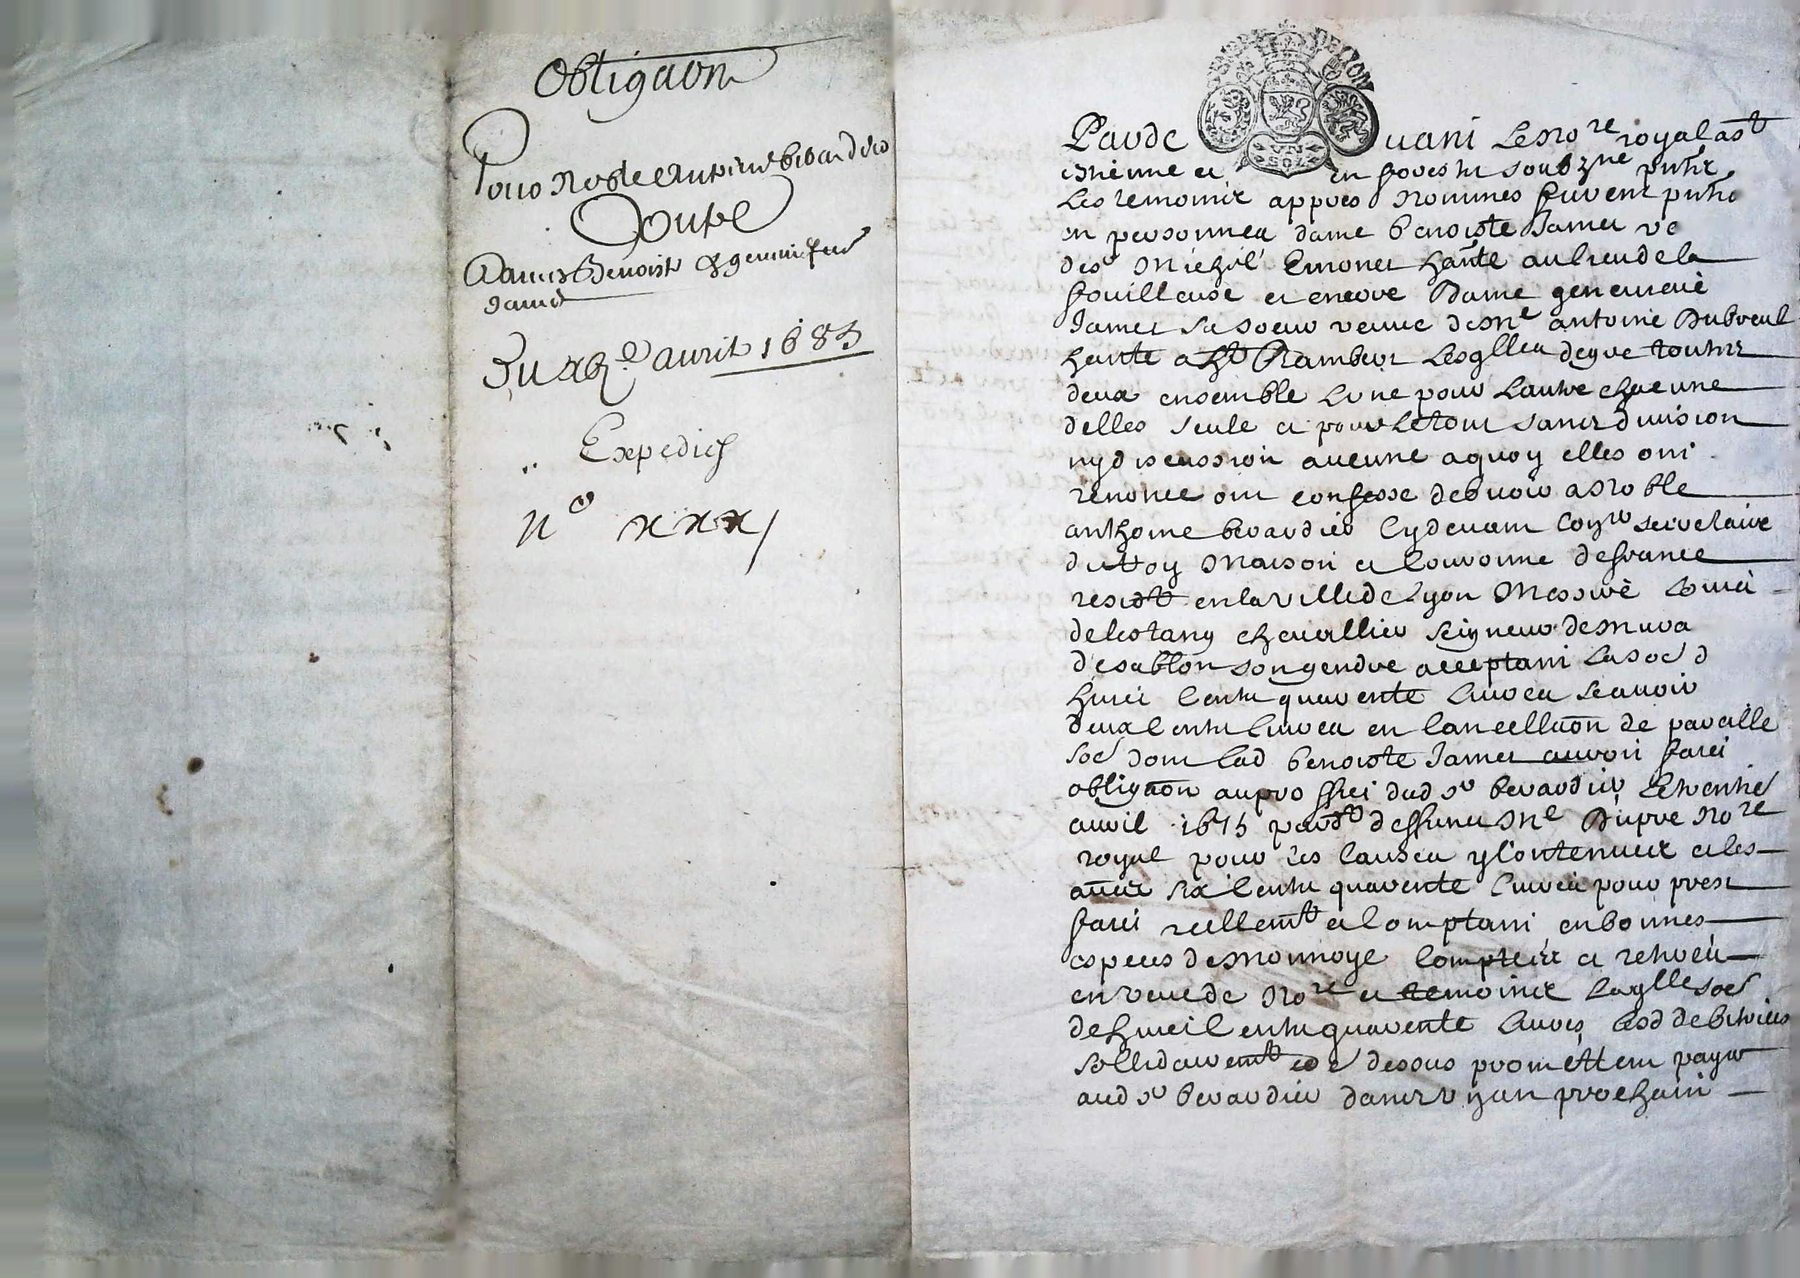 Obligaon
Pour Noble Anthoine berardier
Contre
Dames Benoiste & geneviefve
Jamet
Du xbe. avril 1683
Expedies
No xxxj
GENER DE LYON
UN SOL
Pardevant Le Nore royal a St
estienne et en forests soubzne puntz
Les temoinz appres nommes furent pnts
en personnes dame benoiste Jamet ve
de sr Michel Emonet hante au lieu de la
fouilleuse et encore Dame genevieve
Jamet sa soeur veuve de Me antoine Dubreul
hante a St Rambert Lesqlles de gre toutes
deux ensemble Lune pour Lautre chacune
delles seule et pour le tout sans division
ny discussion aucune a quoy elles ont
renonce ont confesse debvoir a Noble
anthoine berardier cydevant Coner secretaire
du Roy Maison et Couronne de france
residt en la ville de Lyon Messire
de lestang chevallier seigneur de Mura
de sablon son gendre acceptant La soe d
huict centz quarente livres scavoir
deux centz livres en Cancellaon de pareille
soe dont lad benoiste Jamet auroit faict
obligaon au proffict dud sr berardier le trentie
avril 1675 pardt deffunct Me Dupre Nore
royal pour les causes y Contenues et les
autres six centz quarente livres pour prest
faict reellemt et Comptant en bonnes
especes de monnoye Comptees et retirees
en veue de Nore et temoinz Laqlle soe
de huict centz quarente livres Lesd debitrices
sollidairemt coe dessus promettent payer
aud sr berardier dans un an prochain